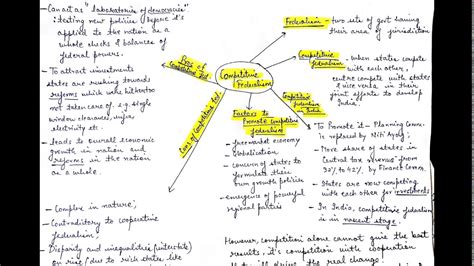 - Can act as "laboratories of democracies"
: testing new policies (before it's
applied to the nation as a
whole checks & balances of
federal powers.
- To attract investments
states are rushing towards
reforms which were hitherto
not taken care of. e.g. single
window clearances, infra,
electricity etc.
- leads to overall economic
growth in nation and
reforms in the nation
as whole.
- Complex in nature,
- Contradictory to cooperative
federalism,
- Disparity and inequalities (interstate)
On rise (due to rich states like
Pros of
Competitive fed.
Cons of Competitive fed.
Competitive
Federalism
Federalism
- two sets of govt having
their area of jurisdiction
Competitive
federalism
- when states compete
with each other,
centre compete with states
& vice versa in their
joint efforts to develop
India.
Competitive
federalism
in India
Factors to
Promote competitive
federalism
- free market economy
- Globalisation
- concern of states to
formulate their
own growth policies
- emergence of powerful
regional parties
- To Promote it - Planning Comm.
is replaced by Niti Ayog,
- More share of states in
Central tax revenue from
32% to 42% by Finance Comm.
- States are now competing
with each other for investments
- In India, Competitive federalism
is in nascent stage.
However, competition alone cannot give the best
results, it's competition with cooperation
that'll drive the real change